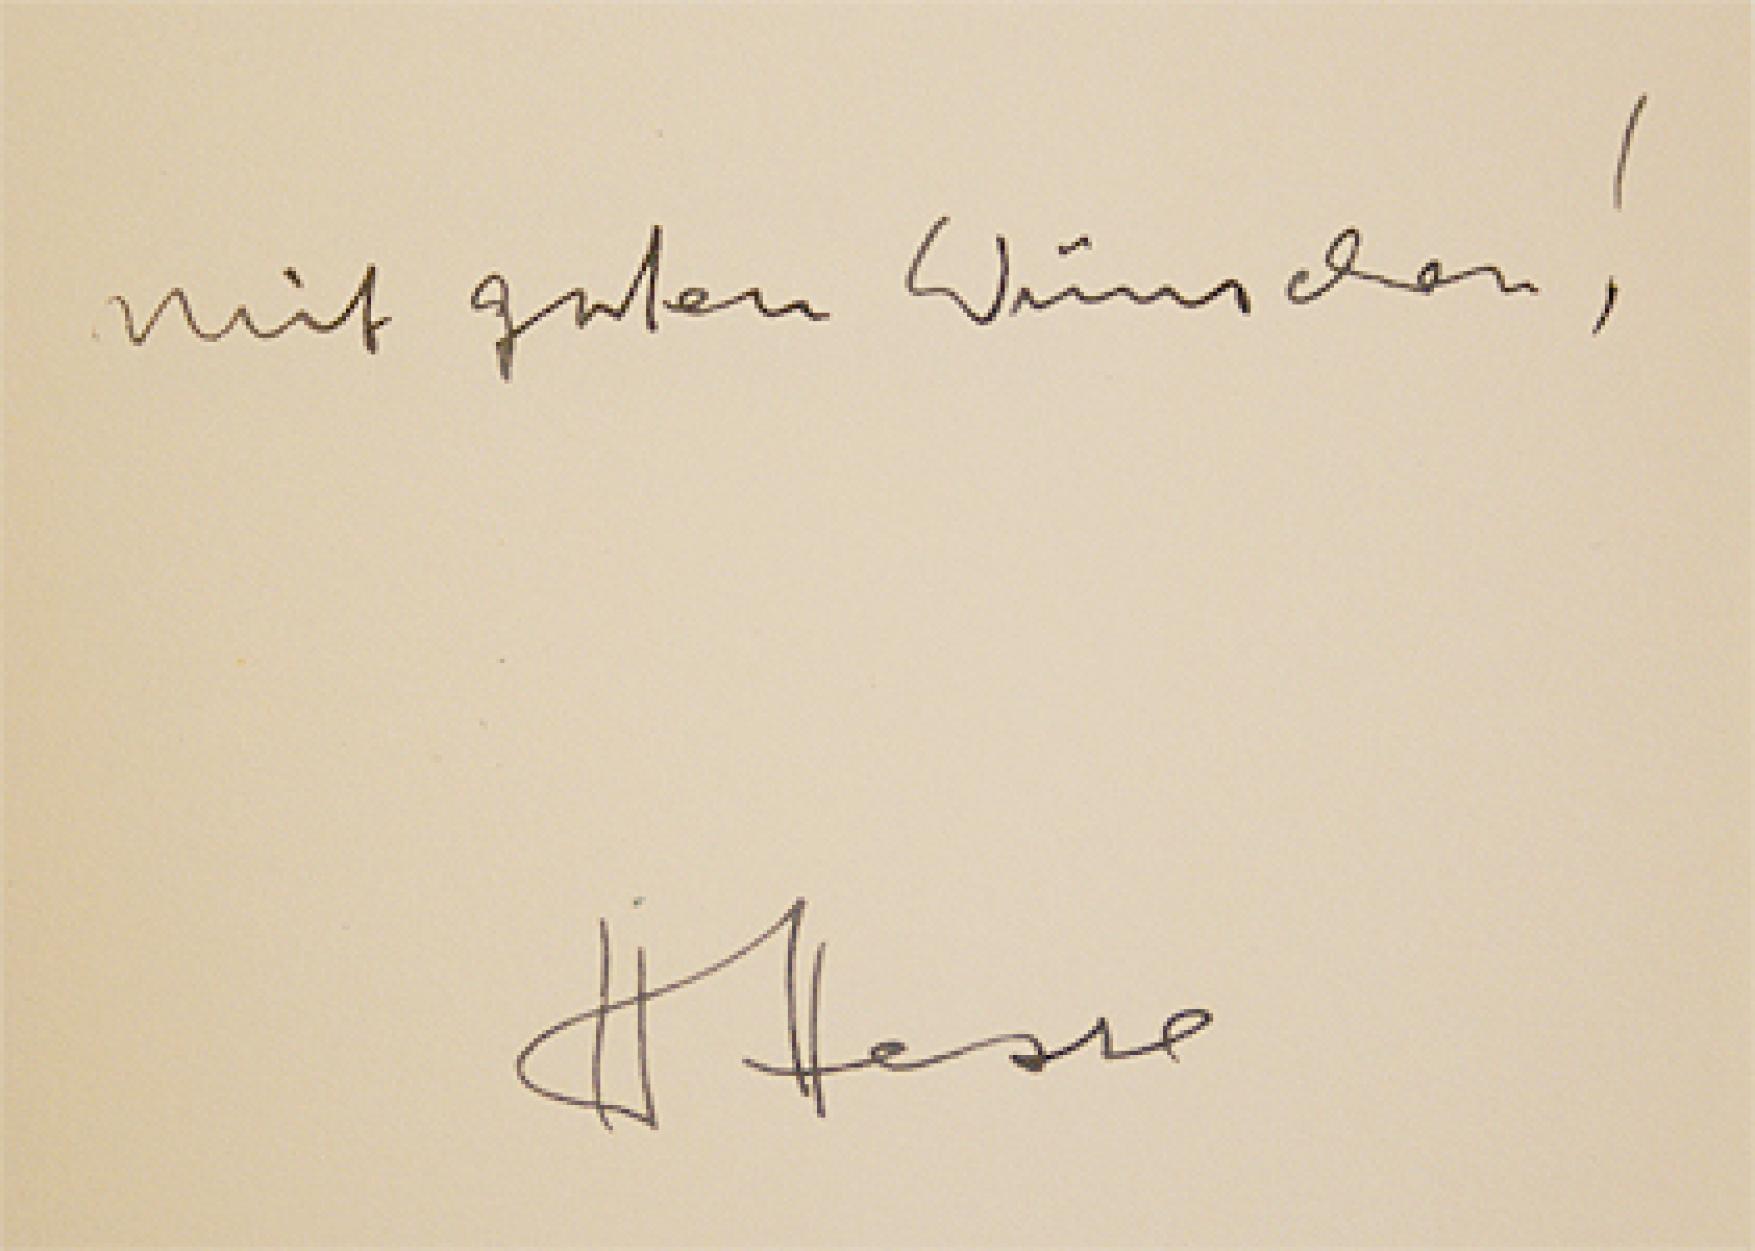 mit guten Wünschen!
H Hesse